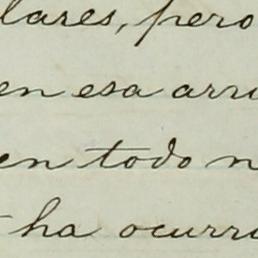 lares, pero
en esa arri
en todo n
ha ocurri